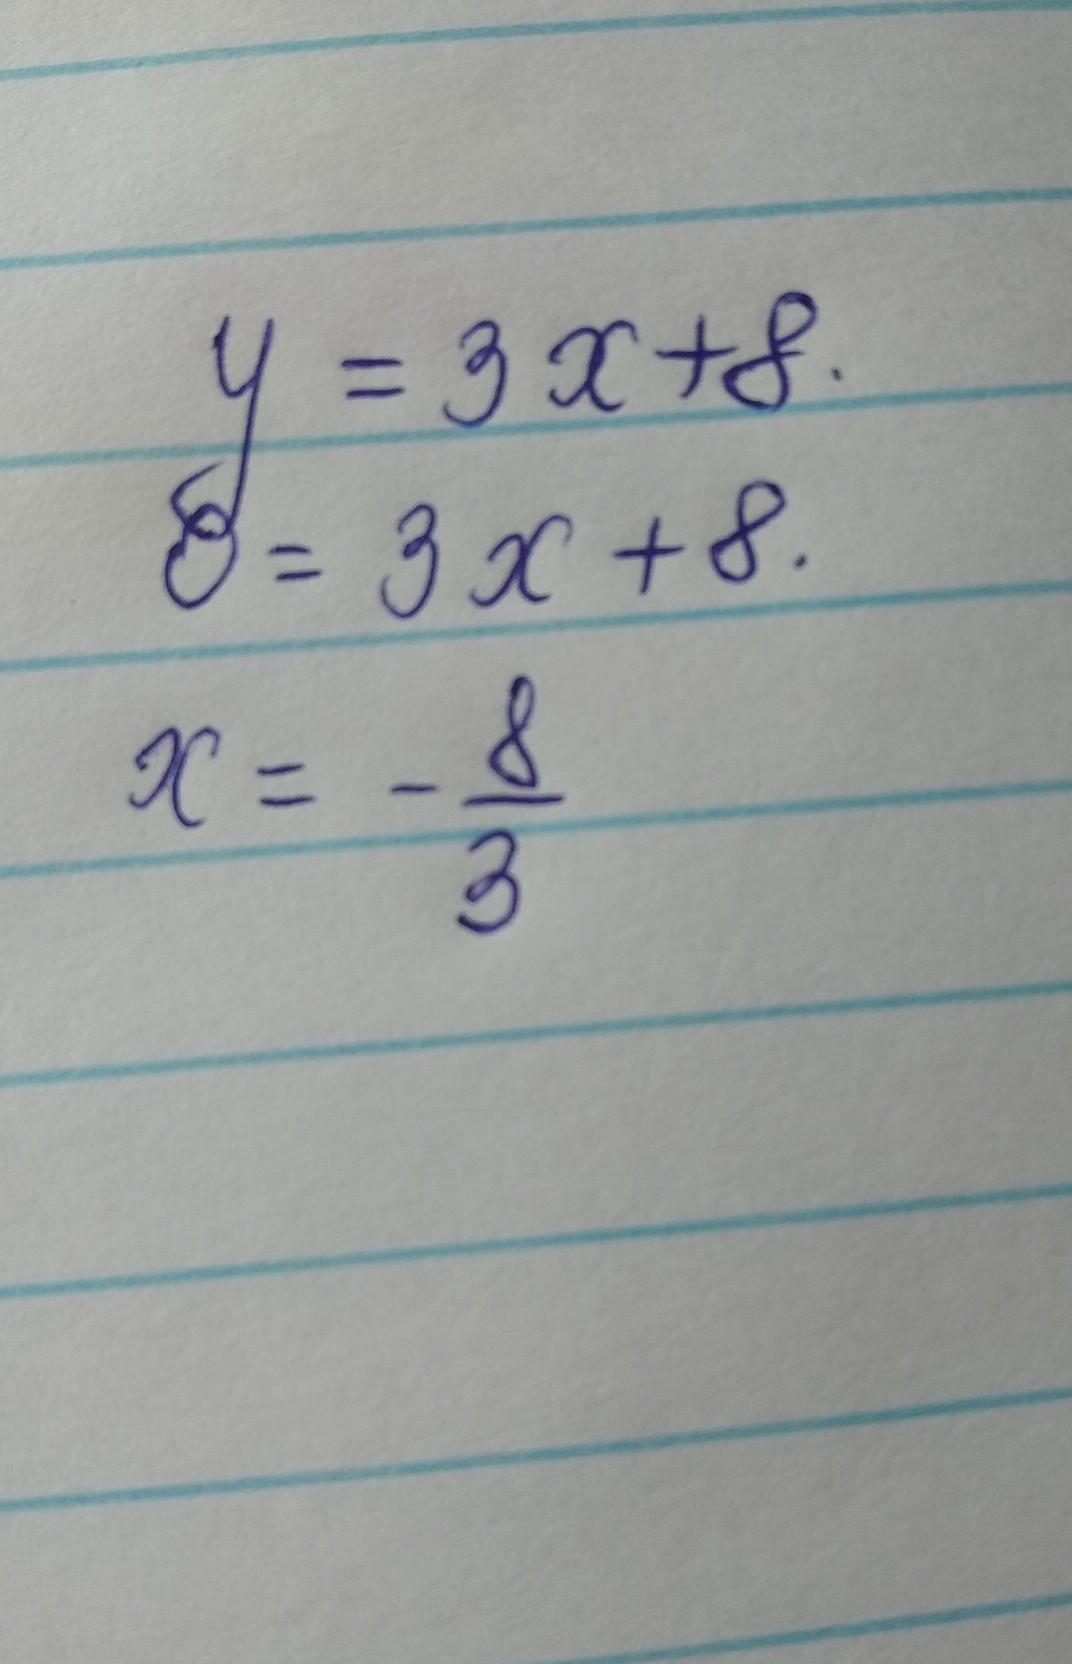 y = 3x+8.
0 = 3x + 8.
x = - 8/3